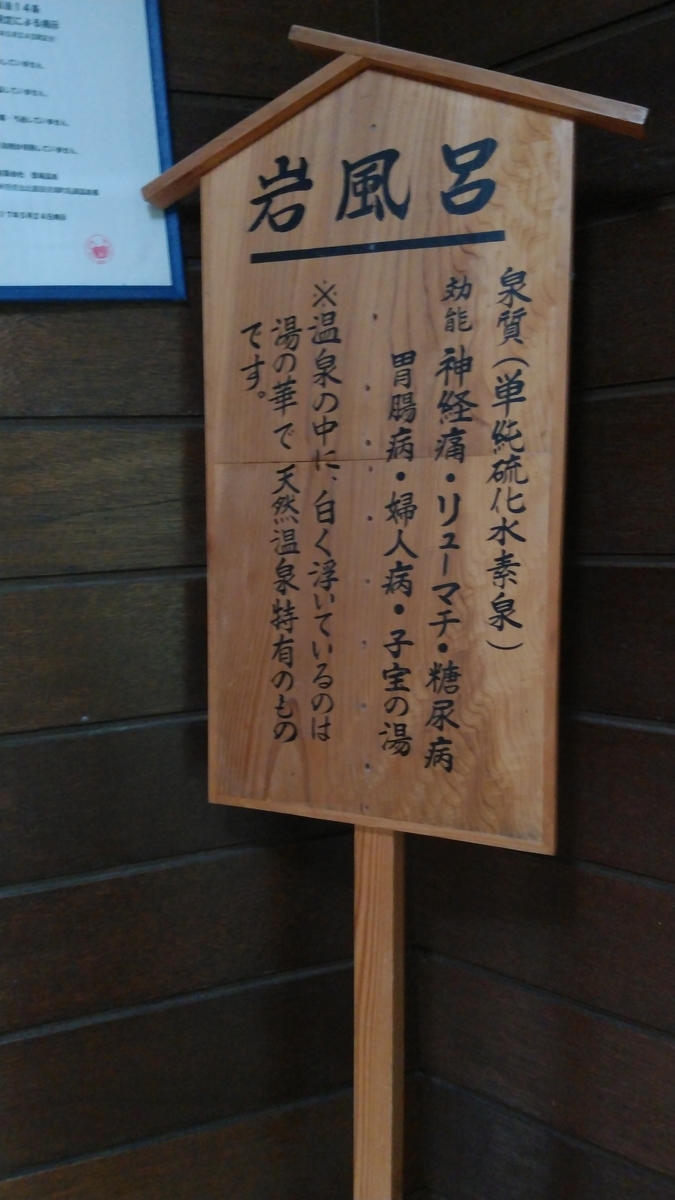 岩風呂
泉質(単純硫化水素泉)
効能 神経痛・リューマチ・糖尿病
胃腸病・婦人病・子宝の湯
※温泉の中に、白く浮いているのは
湯の華で天然温泉特有のもの
です。
していません。